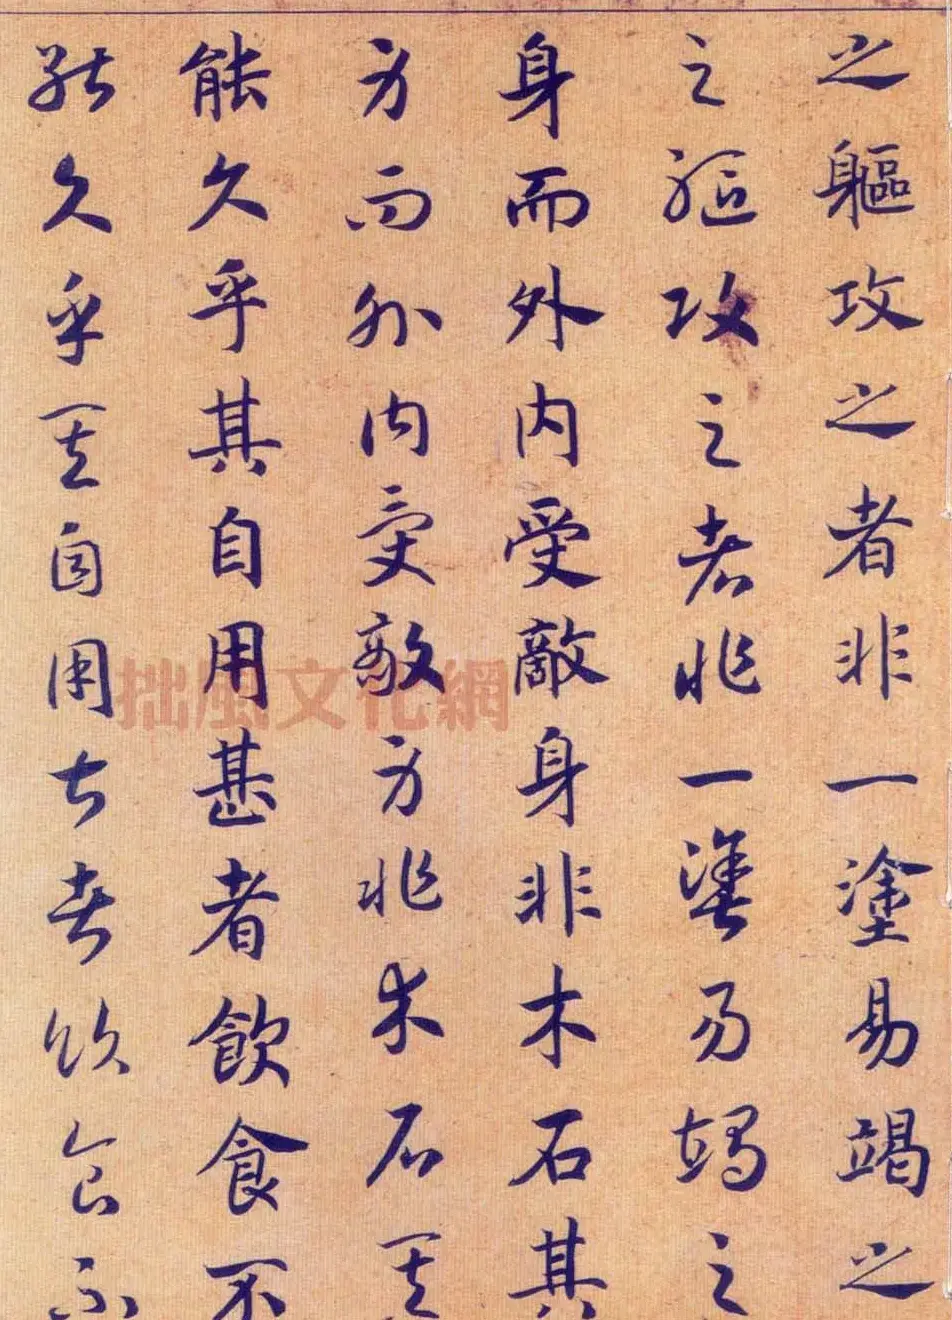 之軀攻之者非一塗易竭之
之軀攻之者非一塗易竭之
身而外內受敵身非木石其
身而外內受敵身非木石其
能久乎其自用甚者飲食不
能久乎其自用甚者飲食不
拙風文化網